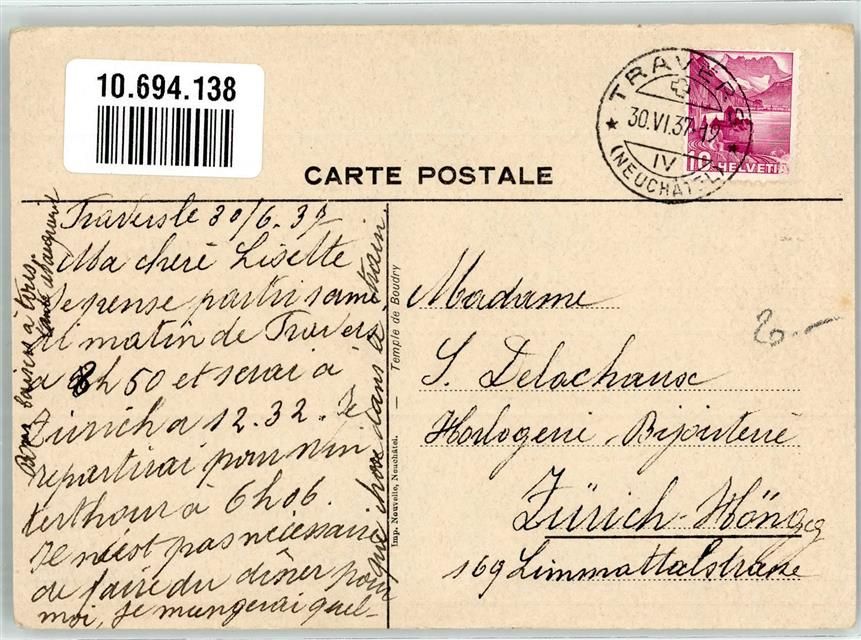 10.694.138
CARTE POSTALE
TRAVERS
30.VI.37-19
IV
(NEUCHATEL)
10 HELVETIA
Travers le 30/6.37
Ma chère Lisette
Je pense partir same
di matin de Travers
à 8h50 et serai à
Zürich à 12.32. Je
repartirai pour Win
terthour à 6h06.
Je n'est pas nécessaire
de faire du dîner pour
moi, je mangerai quel-
que chose dans le train.
Bons baisers à tous.
Temple de Boudry
Imp. Nouvelle, Neuchâtel. —
Madame
S. Delachaux
Horlogerie-Bijouterie
Zürich-Höngg
169 Limmattalstrasse
20.—